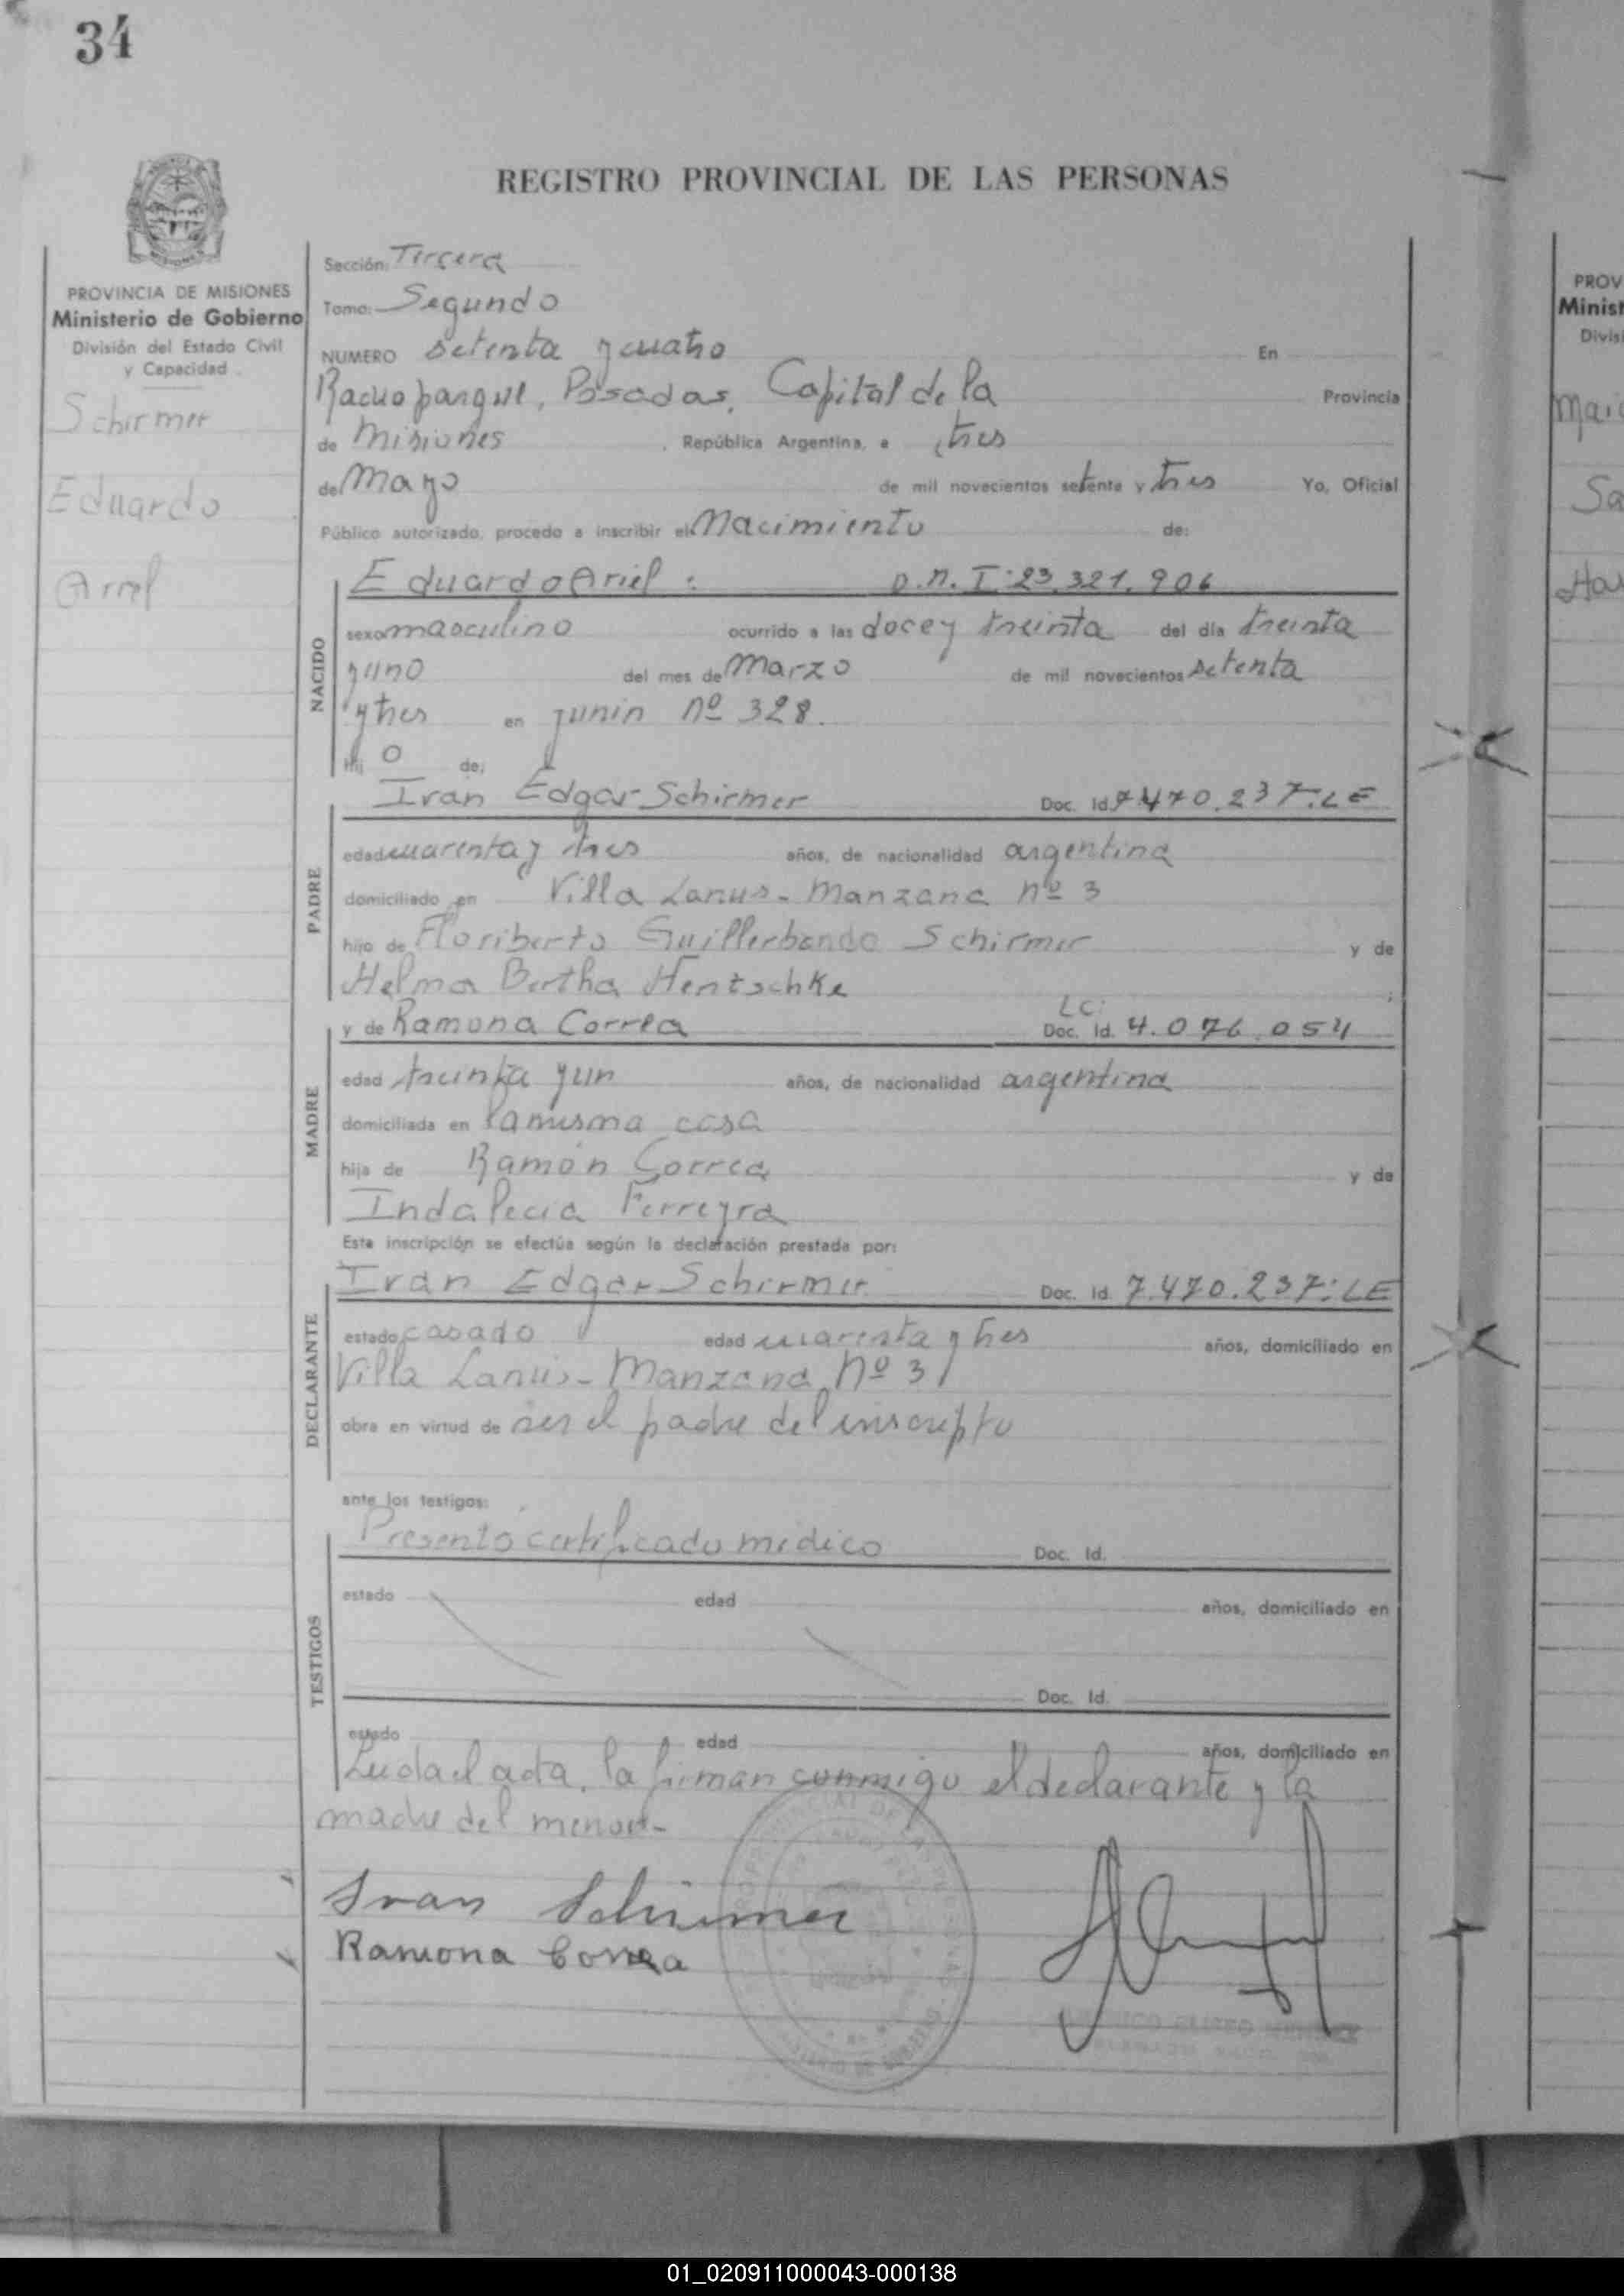 34
REGISTRO PROVINCIAL DE LAS PERSONAS
PROVINCIA DE MISIONES
Ministerio de Gobierno
División del Estado Civil
y Capacidad
Schirmer
Eduardo
Ariel
Sección: Tercera
Tomo: Segundo
NUMERO setenta y cuatro En
Posadas, Capital de la Provincia
de Misiones, República Argentina, a tres
de Mayo de mil novecientos setenta y tres Yo, Oficial
Público autorizado, procedo a inscribir el Nacimiento de:
NACIDO
Eduardo Ariel: D.N.I: 23.321.906
sexo masculino ocurrido a las doce y treinta del día treinta
y uno del mes de Marzo de mil novecientos setenta
y tres en Junin Nº 328.
Hij o de:
PADRE
Ivan Edgar Schirmer Doc. Id. 7.470.237:LE
edad cuarenta y tres años, de nacionalidad argentina
domiciliado en Villa Lanus - Manzana nº 3
hijo de Floriberto Schirmer y de
Helma Bertha Hentschke
MADRE
LC:
y de Ramona Correa Doc. Id. 4.076.054
edad treinta y un años, de nacionalidad argentina
domiciliada en la misma casa
hija de Ramón Correa y de
Indalecia Ferreyra
Esta inscripción se efectúa según la declaración prestada por:
DECLARANTE
Ivan Edgar Schirmer Doc. Id. 7.470.237:LE
estado casado edad cuarenta y tres años, domiciliado en
Villa Lanús - Manzana Nº 3
obra en virtud de ser el padre del inscripto
ante los testigos:
TESTIGOS
Presentó certificado médico Doc. Id.
estado edad años, domiciliado en
Doc. Id.
estado edad años, domiciliado en
Leida el acta, la firman conmigo el declarante y la
madre del menor.-
Ivan Schirmer
Ramona Correa
PROV
Minist
Divis
Sa
01_020911000043-000138